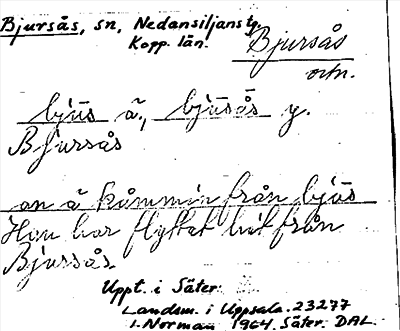 Bjursås, sn, Nedansiljans tg.
Kopp. län.
Bjursås
ortn.
bjus ä., bjusås y.
Bjursås
an ä kåmmin från bjus
Han har flyttat hit från
Bjursås.
Uppt. i Säter
Landsm. i Uppsala. 23277
I. Norman 1964. Säter. DAL.